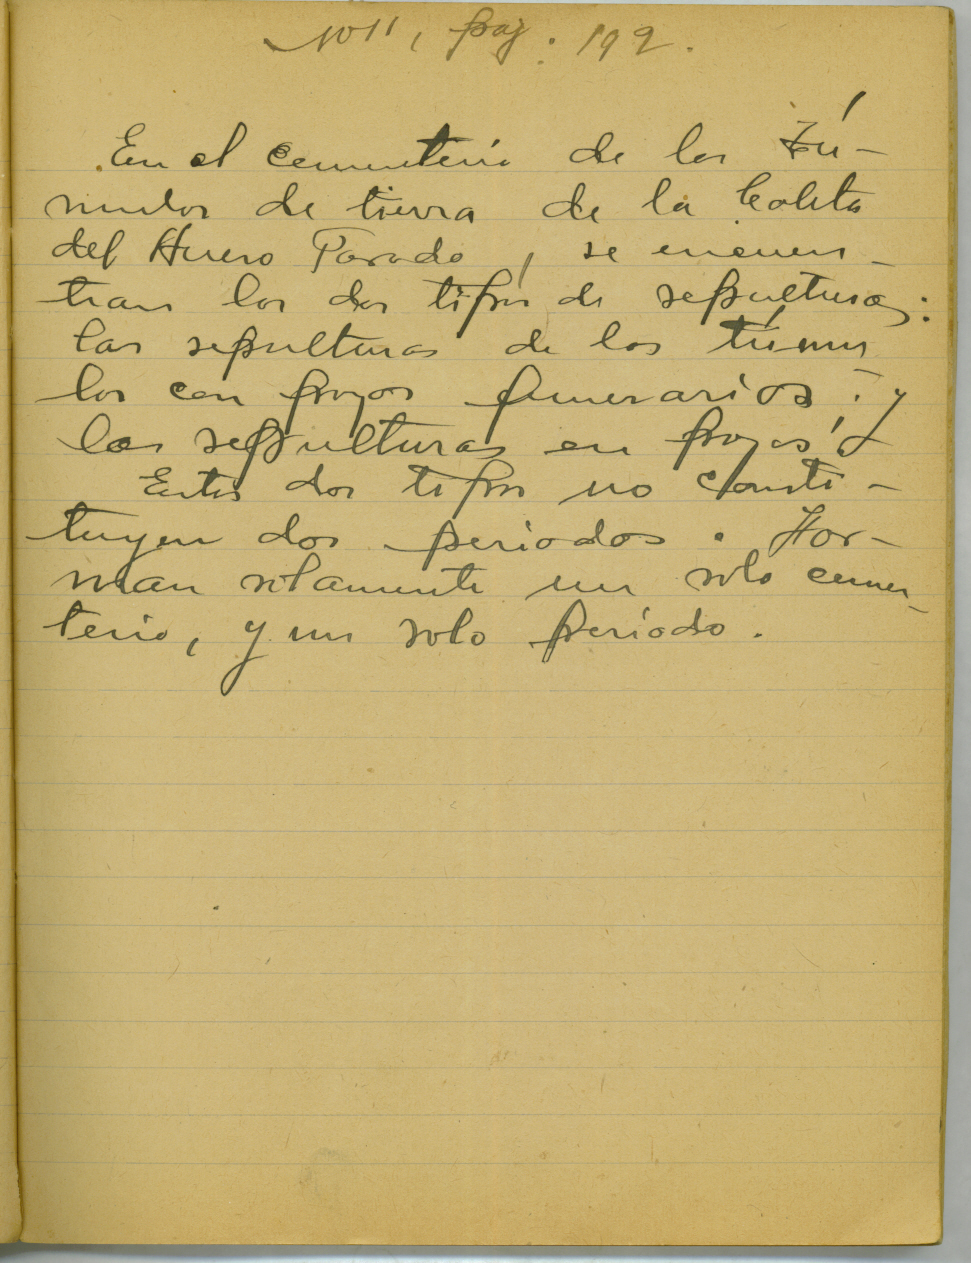 Nº 11, pag. 192.
En el cementerio de los Tú-
mulos de tierra de la Caleta
del Hueso Parado, se encuen-
tran los dos tipos de sepulturas:
las sepulturas de los túmu
los con pozos funerarios; y
las sepulturas en pozos.
Estos dos tipos no consti-
tuyen dos periodos. For-
man solamente un solo cemen-
terio, y un solo período.